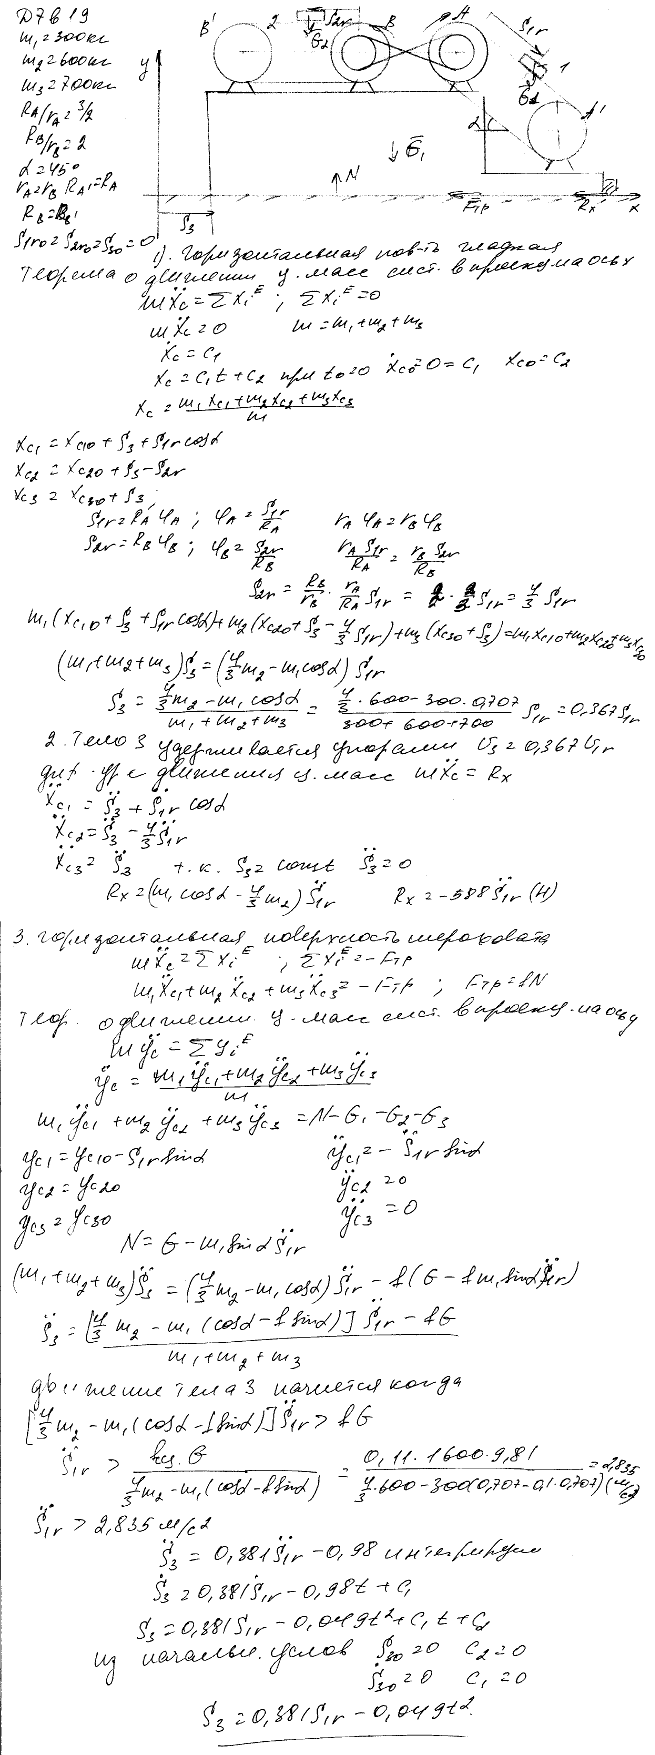 Д7 В 19
m₁=300кг
m₂=600кг
m₃=700кг
R_A/r_A=3/2
R_B/r_B=2
α=45°
r_A=r_B R_A'=R_A
R_B=R_B'
S₁r₀=S₂r₀=S₃₀=0
y B' 2 S₂r G₂ B A S₁r 1 G₁ A' α
G₁ N Fтр Rx x
S₃
1). Горизонтальная пов-ть гладкая
Теорема о движении ц. масс сист. в проекц. на ось x
mẍc = ΣXiᴱ ; ΣXiᴱ=0
mẍc=0 m=m₁+m₂+m₃
ẋc=C₁
xc=C₁t+C₂ при t₀=0 ẋc₀=0=C₁ xc₀=C₂
xc = (m₁xc₁+m₂xc₂+m₃xc₃)/m
xc₁=xc₁₀+S₃+S₁r cosα
xc₂=xc₂₀+S₃-S₂r
xc₃=xc₃₀+S₃;
S₁r=R_A φ_A ; φ_A=S₁r/R_A r_A φ_A=r_B φ_B
S₂r=R_B φ_B ; φ_B=S₂r/R_B r_A S₁r/R_A = r_B S₂r/R_B
S₂r = R_B/r_B · r_A/R_A S₁r = 2 · 2/3 S₁r = 4/3 S₁r
m₁(xc₁₀+S₃+S₁r cosα)+m₂(xc₂₀+S₃-4/3 S₁r)+m₃(xc₃₀+S₃)=m₁xc₁₀+m₂xc₂₀+m₃xc₃₀
(m₁+m₂+m₃)S₃=(4/3 m₂-m₁cosα)S₁r
S₃ = (4/3 m₂-m₁cosα)/(m₁+m₂+m₃) = (4/3·600-300·0,707)/(300+600+700) S₁r=0,367S₁r
2. Тело 3 удерживается упорами V₃=0,367V₁r
диф. ур-е движения ц. масс mẍc=Rx
ẍc₁=S̈₃+S̈₁r cosα
ẍc₂=S̈₃-4/3 S̈₁r
ẍc₃=S̈₃ т.к. S₃=const S̈₃=0
Rx=(m₁cosα-4/3 m₂)S̈₁r Rx=-588S̈₁r (Н)
3. Горизонтальная поверхность шероховата
mẍc=ΣXiᴱ ; ΣXiᴱ=-Fтр
m₁ẍc₁+m₂ẍc₂+m₃ẍc₃=-Fтр ; Fтр=fN
Теор. о движении ц. масс сист. в проекц. на ось y
mÿc=ΣYiᴱ
ÿc = (m₁ÿc₁+m₂ÿc₂+m₃ÿc₃)/m
m₁ÿc₁+m₂ÿc₂+m₃ÿc₃=N-G₁-G₂-G₃
yc₁=yc₁₀-S₁r sinα ÿc₁=-S̈₁r sinα
yc₂=yc₂₀ ÿc₂=0
yc₃=yc₃₀ ÿc₃=0
N=G-m₁sinα S̈₁r
(m₁+m₂+m₃)S̈₃=(4/3 m₂-m₁cosα)S̈₁r-f(G-fm₁sinα S̈₁r)
S̈₃ = ([4/3 m₂-m₁(cosα-f sinα)]S̈₁r-fG)/(m₁+m₂+m₃)
движение тела 3 начнется когда
[4/3 m₂-m₁(cosα-f sinα)]S̈₁r>fG
S̈₁r > G/(4/3 m₂-m₁(cosα-f sinα)) = (0,11·1600·9,81)/(4/3·600-300(0,707-0,1·0,707)) =2,835 (м/с²)
S̈₁r>2,835 м/с²
S̈₃=0,381S̈₁r-0,98 интегрируем
Ṡ₃=0,381Ṡ₁r-0,98t+C₁
S₃=0,381S₁r-0,049t²+C₁t+C₂
из начальн. услов S₃₀=0 C₂=0
Ṡ₃₀=0 C₁=0
S₃=0,381S₁r-0,049t².